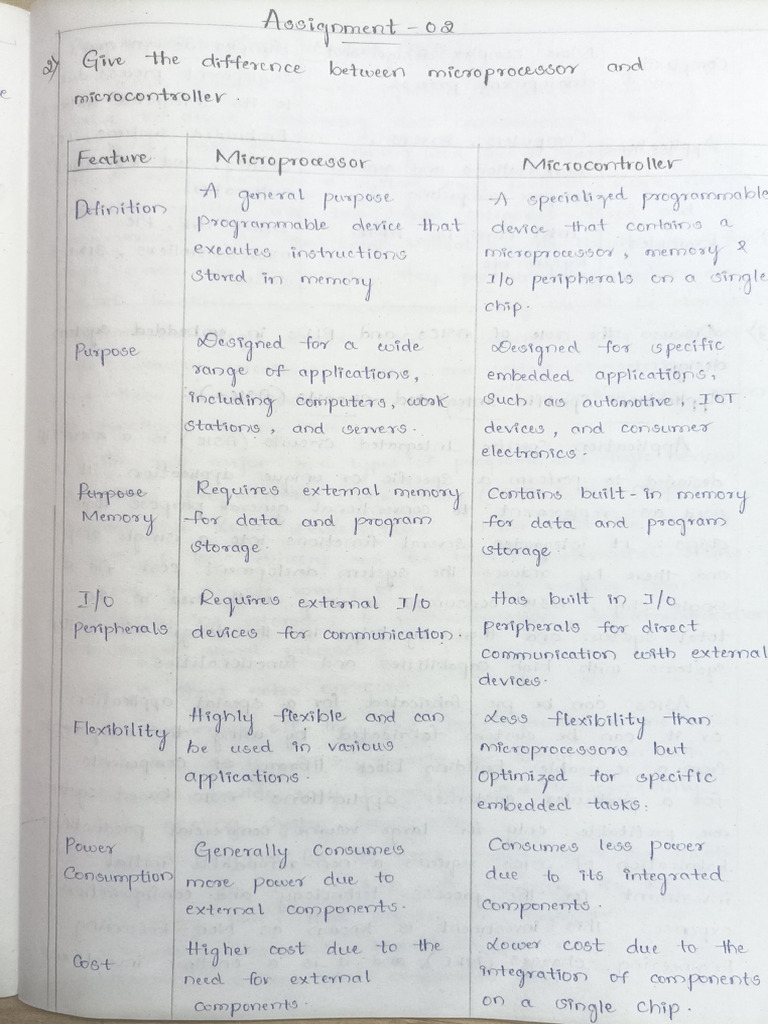 Assignment - 02
2) Give the difference between microprocessor and
microcontroller.
Feature
Microprocessor
Microcontroller
Definition
A general purpose
programmable device that
executes instructions
stored in memory
A specialized programmable
device that contains a
microprocessor, memory &
I/o peripherals on a single
chip.
Purpose
Designed for a wide
range of applications,
including computers, work
stations, and servers.
Designed for specific
embedded applications,
such as automotive, IOT
devices, and consumer
electronics.
Purpose
Memory
Requires external memory
for data and program
storage.
Contains built-in memory
for data and program
storage.
I/o
peripherals
Requires external I/o
devices for communication.
Has built in I/o
peripherals for direct
communication with external
devices.
Flexibility
Highly flexible and can
be used in various
applications.
Less flexibility than
microprocessors but
optimized for specific
embedded tasks.
Power
Consumption
Generally Consumes
more power due to
external components.
Consumes less power
due to its integrated
components.
Cost
Higher cost due to the
need for external
components.
Lower cost due to the
integration of components
on a single chip.